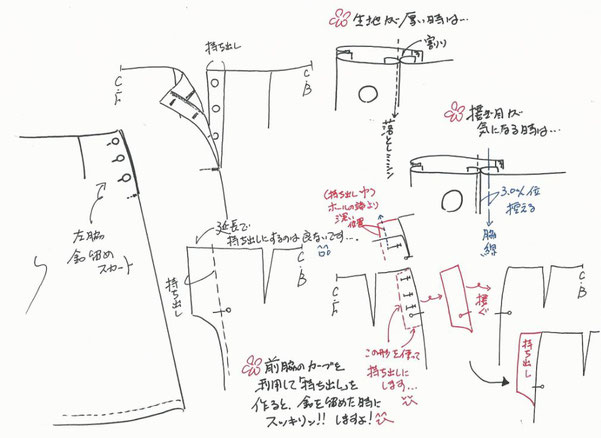 生地が厚い時は…
割り
落としミシン
持ち出し
C.F
C.B
接ぎ目が
気になる時は…
3.0%位
控える
脇線
左脇
釦留め
スカート
延長で
持ち出しにするのは良ないです…
持ち出し
C.B
(持ち出し
ホールの端より
深い
位置
C.F
接ぐ
この形を使って
持ち出しに
します…
C.B
持ち出し
前脇のカーブを
利用して「持ち出し」を
作ると、釦を留めた時に
スッキリ!!しますよ!